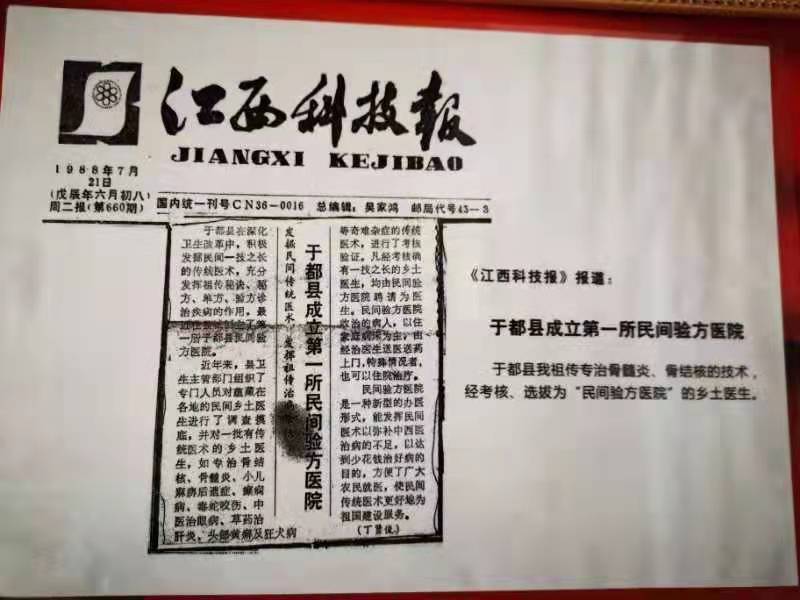 江西科技报
JIANGXI KEJIBAO
1988年7月
21日
(戊辰年六月初八)
周二报(第660期)
国内统一刊号CN36-0016 总编辑:吴家鸿 邮局代号43-3
发掘民间传统医术 发挥祖传治病
于都县成立第一所民间验方医院
于都县在深化
卫生改革中,积极
发掘民间一技之长
的传统医术,充分
发挥祖传秘诀、秘
方、单方、验方诊
治疾病的作用,最
第
一所于都县民间验
方医院。
近年来,县卫
生主管部门组织了
专门人员对蕴藏在
各地的民间乡土医
生进行了调查摸
底,并对一批有传
统医术的乡土医
生,如专治骨结
核、骨髓炎、小儿
麻痹后遗症、癫痫
病、毒蛇咬伤、中
医治眼病、草药治
肝炎、头部黄癣及狂犬病
等奇难杂症的传统
医术,进行了考核
验证。凡经考核确
有一技之长的乡土
医生,均由民间验
方医院聘请为医
生。民间验方医院
收治的病人,以住
家庭病床为主,由
经治医生送医送药
上门,特殊情况者,
也可以住院治疗。
民间验方医院
是一种新型的办医
形式,能发挥民间
医术以弥补中西医
治病的不足,以达
到少花钱治好病的
目的,方便了广大
农民就医,使民间
传统医术更好地为
祖国建设服务。
(丁贤俊)
《江西科技报》报道:
于都县成立第一所民间验方医院
于都县我祖传专治骨髓炎、骨结核的技术,
经考核、选拔为“民间验方医院”的乡土医生。